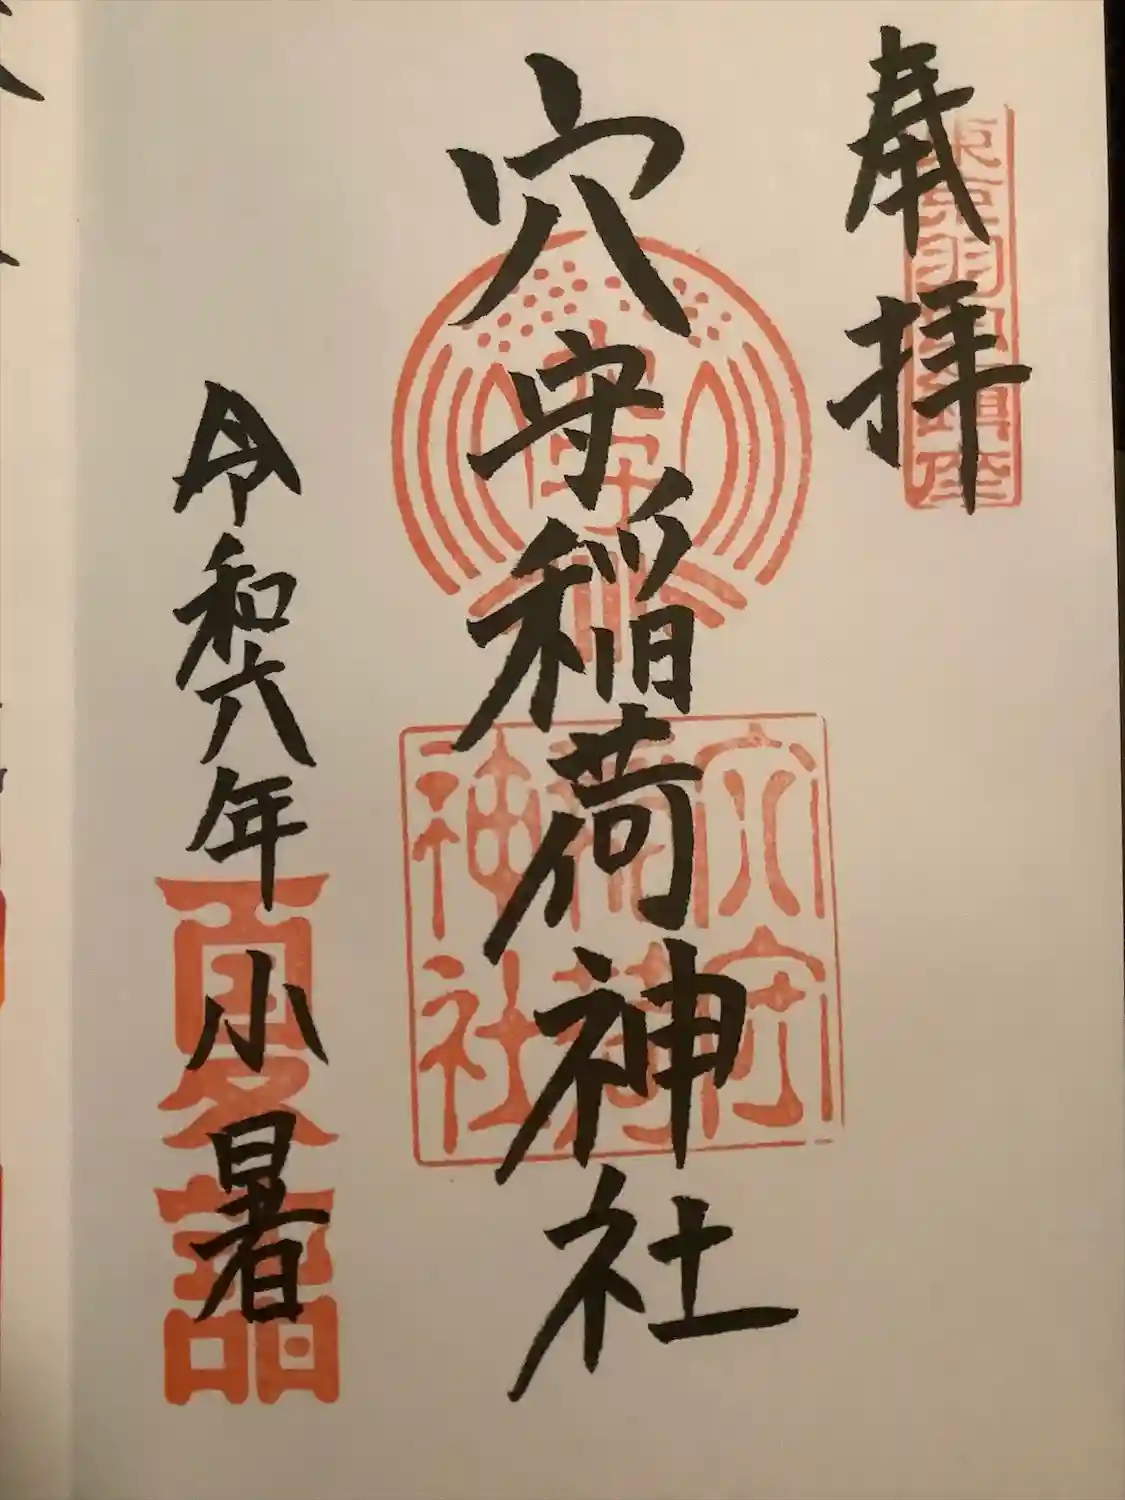 奉拝
穴守稲荷神社
穴守
稲荷
神社
令和六年 小暑